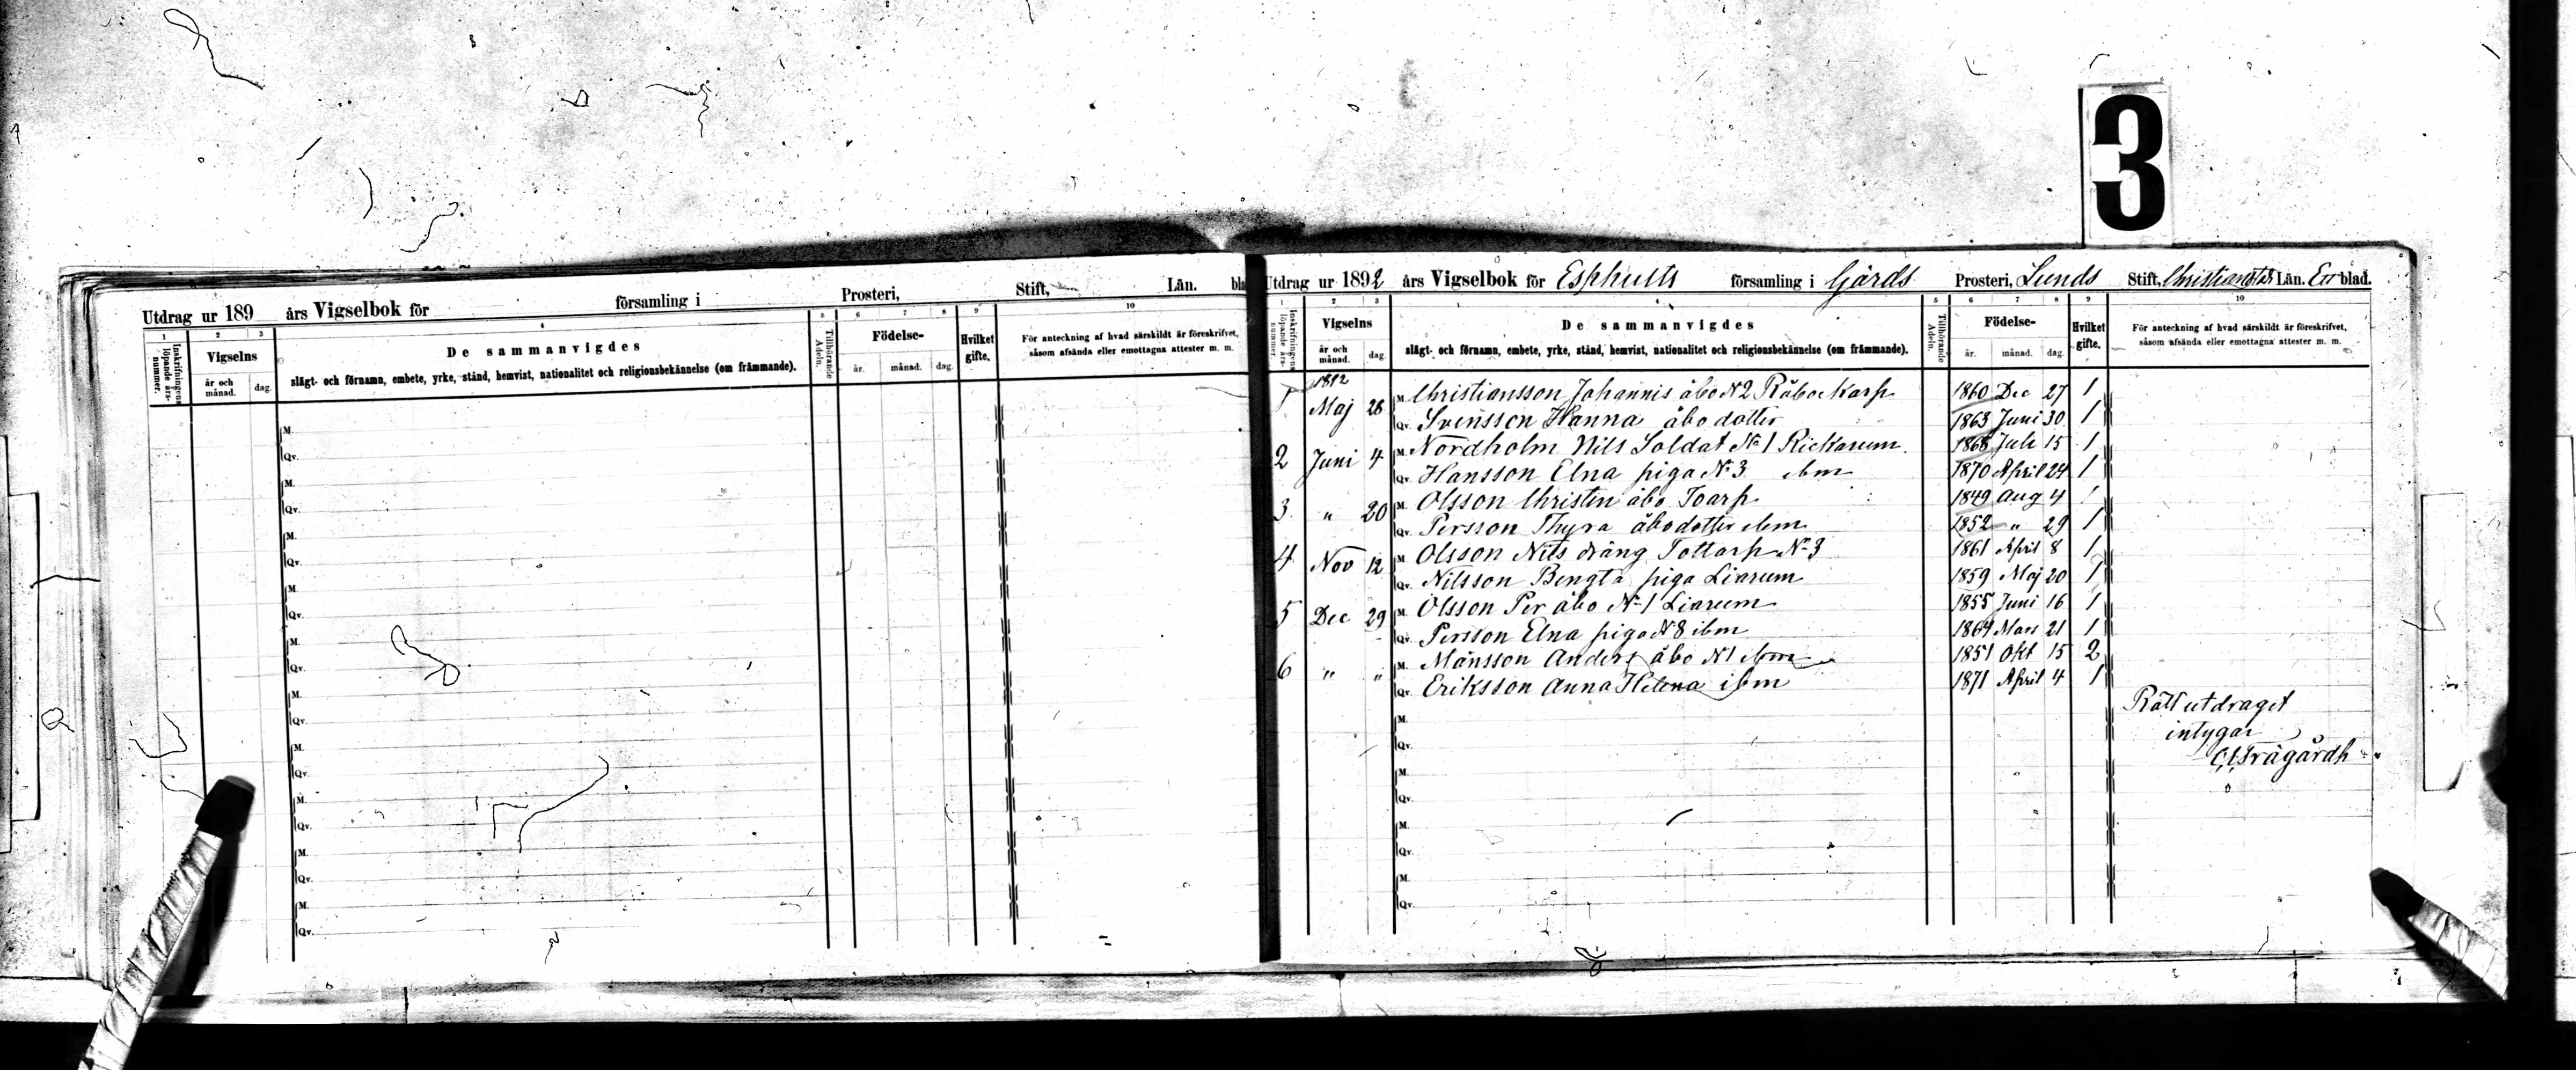 3
Utdrag ur 189 års Vigselbok för församling i Prosteri, Stift, Län. bla
1 2 3 4 5 6 7 8 9 10
Inskrifningens löpande års-nummer.
Vigselns
år och månad.
dag.
De sammanvigdes
slägt- och förnamn, embete, yrke, stånd, hemvist, nationalitet och religionsbekännelse (om främmande).
Tillhörande Adeln.
Födelse-
år. månad. dag.
Hvilket gifte.
För anteckning af hvad särskildt är föreskrifvet,
såsom afsända eller emottagna attester m. m.
M.
Qv.
M.
Qv.
M.
Qv.
M.
Qv.
M.
Qv.
M.
Qv.
M.
Qv.
M.
Qv.
M.
Qv.
M.
Qv.
Utdrag ur 1892 års Vigselbok för Esphults församling i Gärds Prosteri, Lunds Stift, Christianstads Län. Ett blad.
1 2 3 4 5 6 7 8 9 10
Inskrifningens löpande års-nummer.
Vigselns
år och månad.
dag.
De sammanvigdes
slägt- och förnamn, embete, yrke, stånd, hemvist, nationalitet och religionsbekännelse (om främmande).
Tillhörande Adeln.
Födelse-
år. månad. dag.
Hvilket gifte.
För anteckning af hvad särskildt är föreskrifvet,
såsom afsända eller emottagna attester m. m.
1892
1 Maj 28 M. Christiansson Johannis åbo N 2 Råboekarp 1860 Dec 27 1
Qv. Svensson Hanna åbodotter 1863 Juni 30 1
2 Juni 4 M. Nordholm Nils Soldat No 1 Rickarum. 1868 Juli 15 1
Qv. Hansson Elna piga No 3 ibm 1870 April 24 1
3 " 20 M. Olsson Christen åbo Toarp 1849 Aug 4 1
Qv. Persson Thyra åbodotter ibm 1852 " 29 1
4 Nov 12 M. Olsson Nils dräng Tollarp No 3 1861 April 8 1
Qv. Nilsson Bengta piga Liarum 1859 Maj 20 1
5 Dec 29 M. Olsson Per åbo No 1 Liarum 1855 Juni 16 1
Qv. Persson Elna piga N 8 ibm 1864 Mars 21 1
6 " " M. Månsson Anders åbo N 1 ibm 1851 Okt 15 2
Qv. Eriksson Anna Helena ibm 1871 April 4 1
M.
Qv.
M.
Qv.
M.
Qv.
M.
Qv.
Rätt utdraget
intygar
Trägårdh